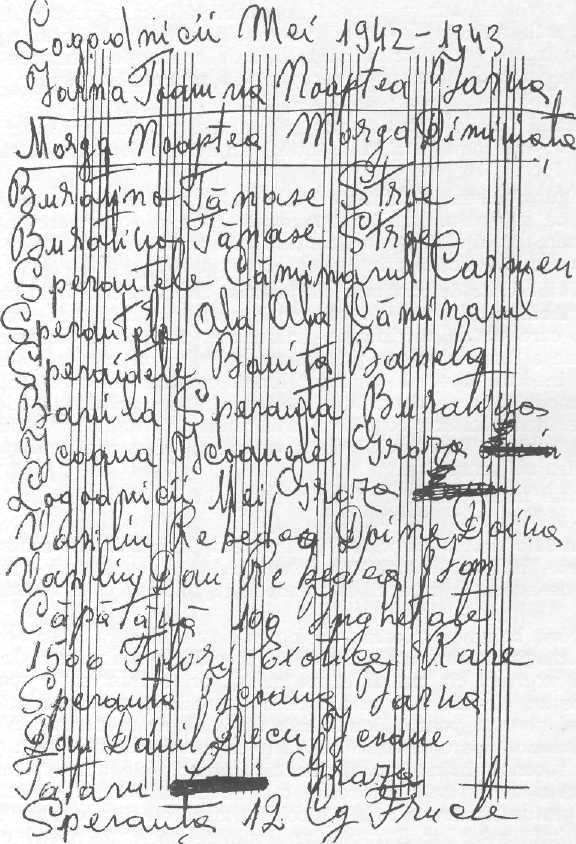 Logodnicii Mei 1942-1943
Jarna Toamna Noaptea Jarna
Morga Noaptea Morga Diminiata
Buratino Tănase Stroe
Buratino Tănase Stroe
Sperantele Căminarul Carmen
Sperantele Aba Aba Căminarul
Sperantele Banita Banela
Banila Speranta Buratino
Jcoana Jcoanele Groza
Logodnicii Mei Groza
Vasiliu Rebedea Doina Doina
Vasiliu Dan Rebedea Jon
Căpătână 100 Jnghetate
1500 Flori Exotice Rare
Speranta Jcoana Jarna
Dan Dănil Decu Jcoane
Tătaru Groza
Speranta 12 Cg Fructe